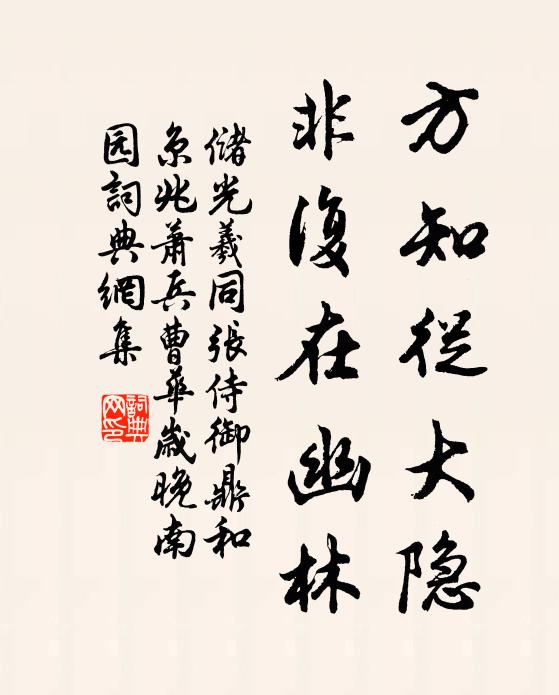 方知從大隐
非復在幽林
儲光羲同張侍御鼎和
京兆蕭兵曹華歲晚南
园詞典網集
詞典
网印